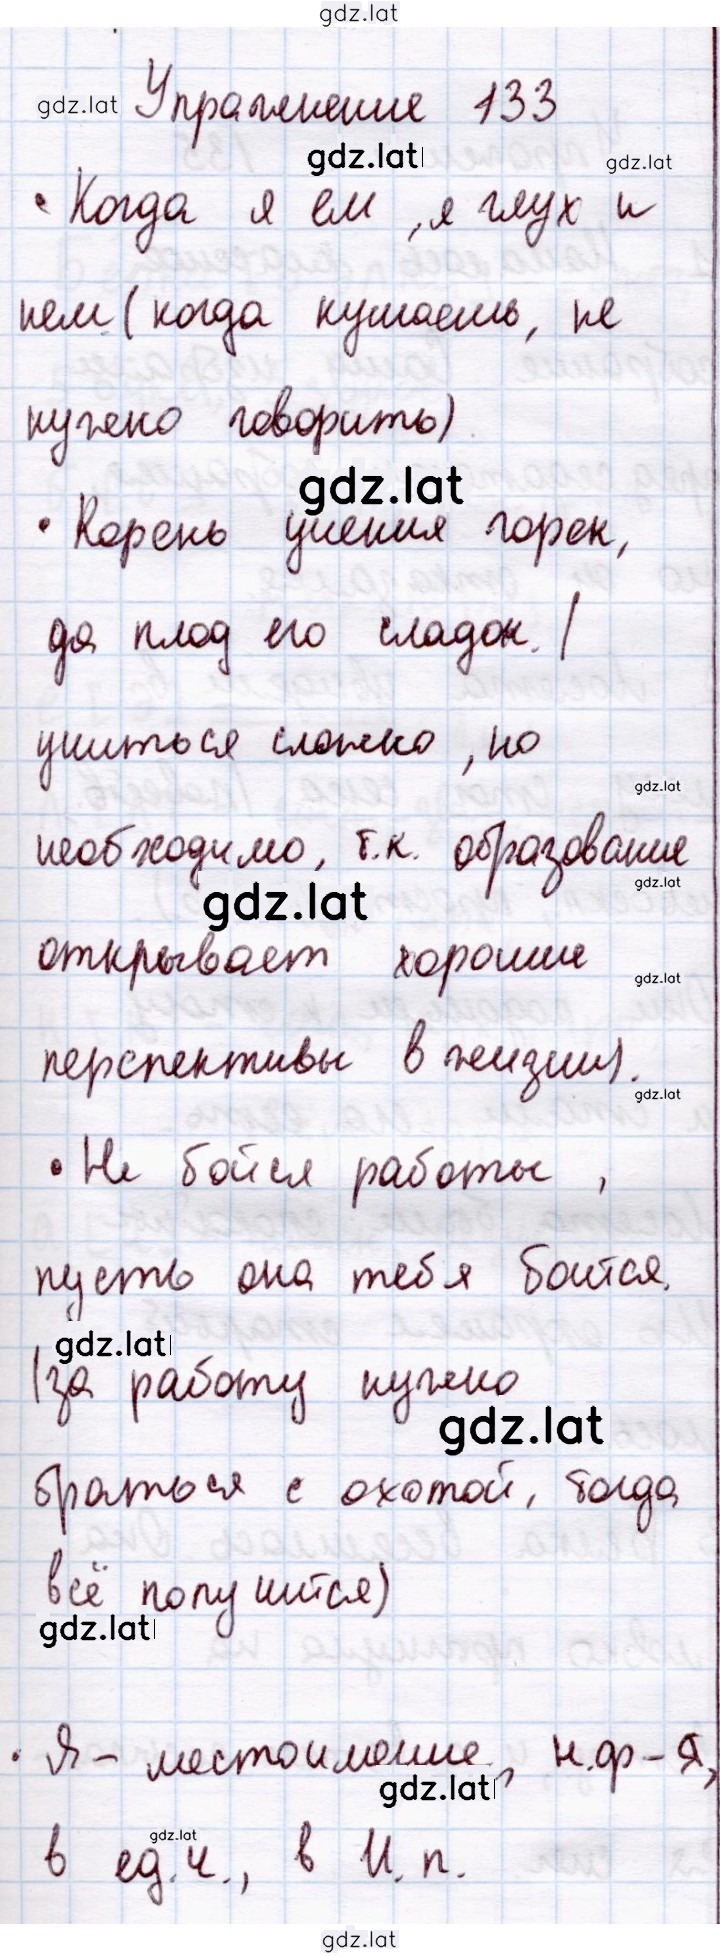 gdz.lat
gdz.lat Упражнение 133
gdz.lat gdz.lat
• Когда я ем, я глух и
нем. (когда кушаешь, не
нужно говорить)
gdz.lat
• Корень учения горек,
да плод его сладок. (
учиться сложно, но
gdz.lat
необходимо, т.к. образование
gdz.lat gdz.lat
открывает хорошие
gdz.lat
перспективы в жизни).
gdz.lat
• Не бойся работы,
пусть она тебя боится.
gdz.lat
(за работу нужно
gdz.lat
браться с охотой, тогда
всё получится)
gdz.lat
• Я – местоимение, н.ф – Я,
gdz.lat
gdz.lat
в ед.ч., в И.п.
gdz.lat